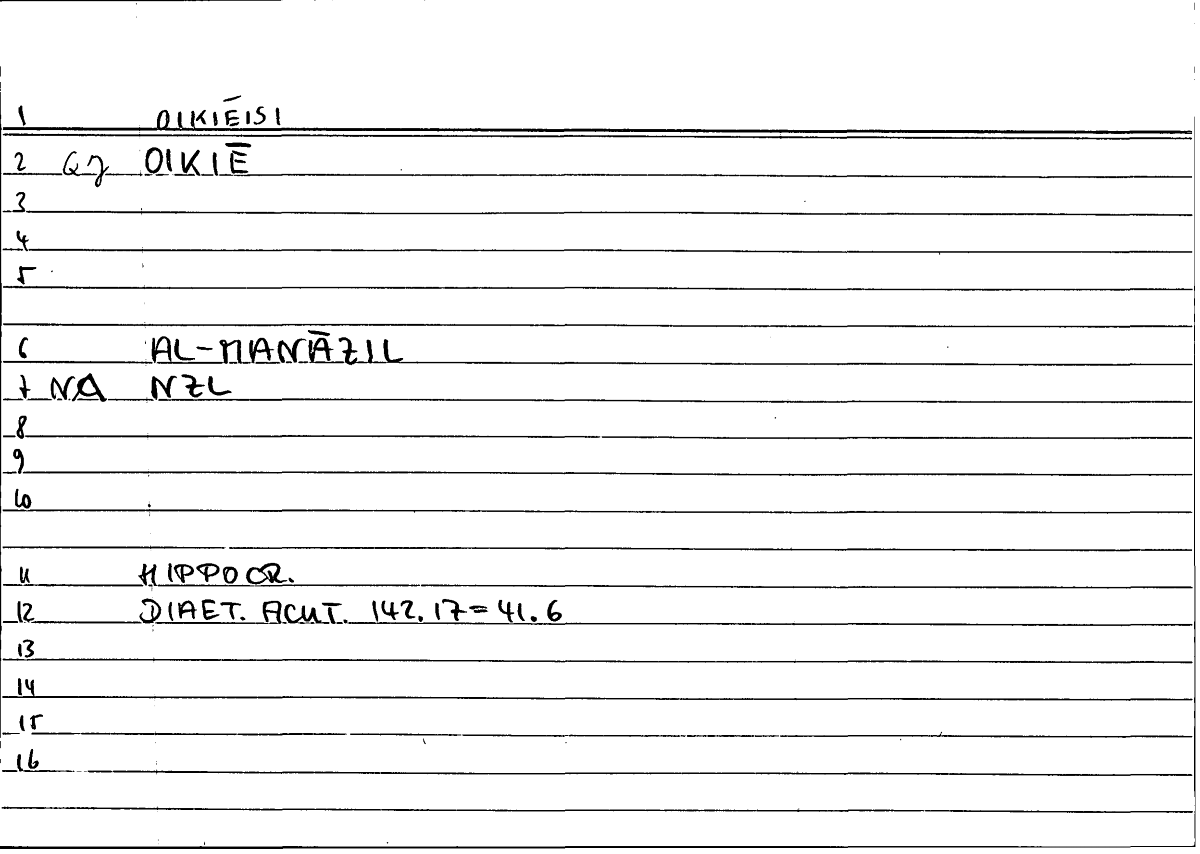 1 OIKIĒISI
2 GJ OIKIĒ
3
4
5
6 AL-MANĀZIL
7 NA NZL
8
9
10
11 HIPPOCR.
12 DIAET. ACUT. 142.17=41.6
13
14
15
16